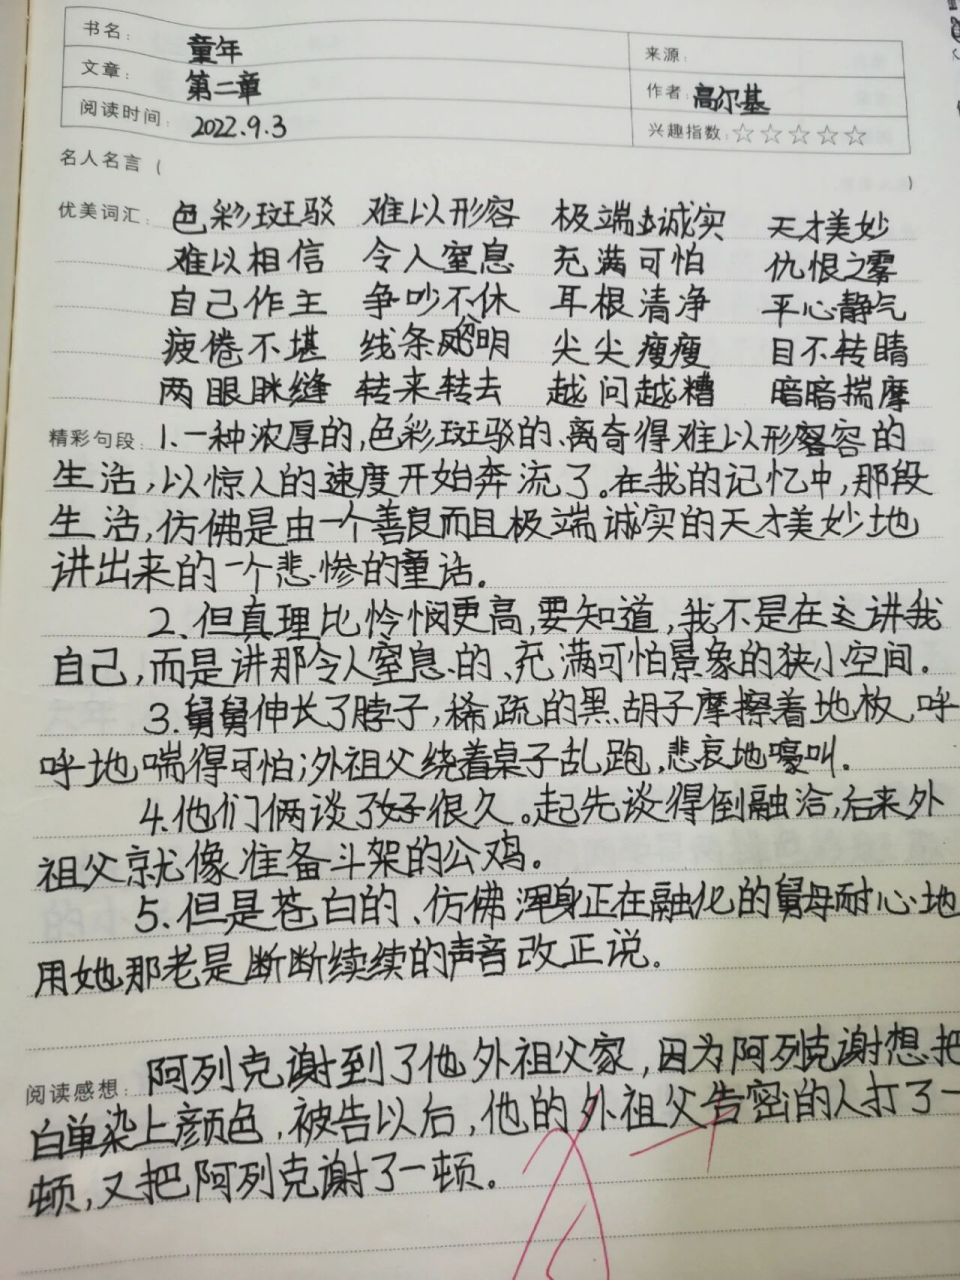 书名： 童年 来源：
文章： 第二章 作者： 高尔基
阅读时间： 2022.9.3 兴趣指数：☆☆☆☆☆
名人名言（ ）
优美词汇： 色彩斑驳 难以形容 极端诚实 天才美妙
难以相信 令人窒息 充满可怕 仇恨之雾
自己作主 争吵不休 耳根清净 平心静气
疲倦不堪 线条分明 尖尖瘦瘦 目不转睛
两眼眯缝 转来转去 越问越糟 暗暗揣摩
精彩句段： 1.一种浓厚的,色彩斑驳的、离奇得难以形容的
生活,以惊人的速度开始奔流了。在我的记忆中,那段
生活,仿佛是由一个善良而且极端诚实的天才美妙地
讲出来的一个悲惨的童话。
2、但真理比怜悯更高,要知道,我不是在这讲我
自己,而是讲那令人窒息的、充满可怕景象的狭小空间。
3.舅舅伸长了脖子,稀疏的黑胡子摩擦着地板,呼
呼地喘得可怕;外祖父绕着桌子乱跑,悲哀地嚎叫.
4.他们俩谈了好很久。起先谈得倒融洽,后来外
祖父就像准备斗架的公鸡。
5、但是苍白的、仿佛浑身正在融化的舅母耐心地
用她那老是断断续续的声音改正说。
阅读感想： 阿列克谢到了他外祖父家,因为阿列克谢想把
白单染上颜色,被告以后,他的外祖父告密的人打了一
顿,又把阿列克谢了一顿。